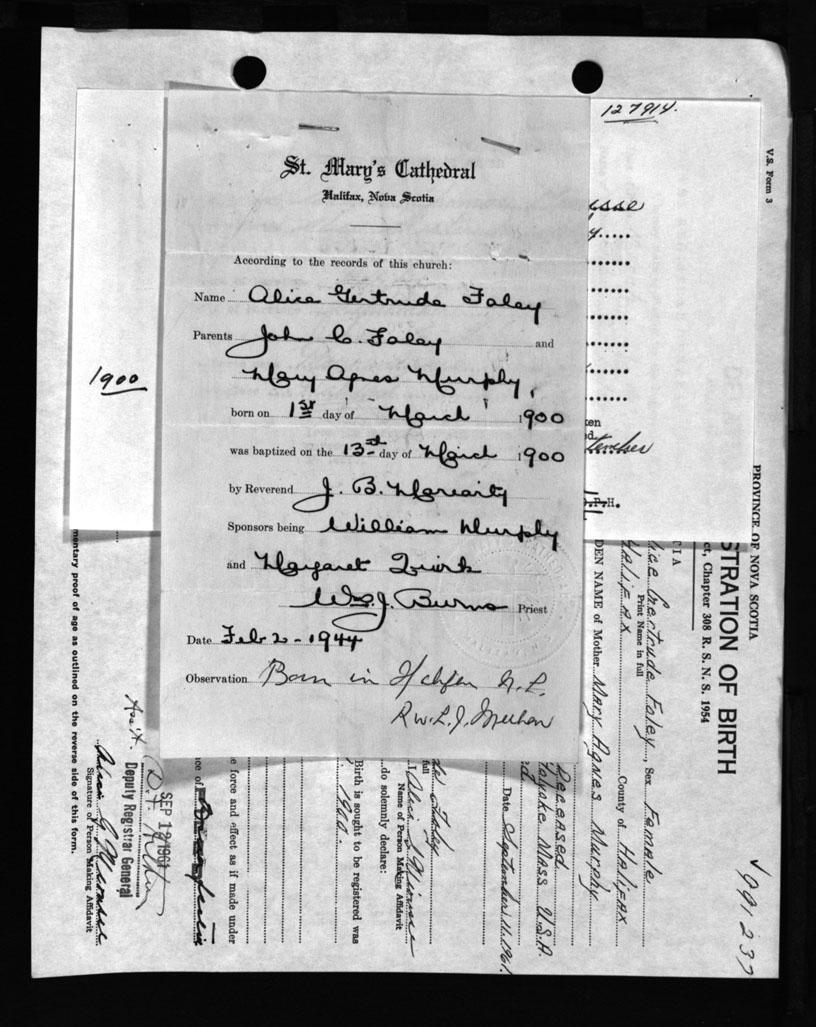 127914.
V.S. Form 3
St. Mary's Cathedral
Halifax, Nova Scotia
According to the records of this church:
Name Alice Gertrude Foley
Parents John C. Foley and
Mary Agnes Murphy,
born on 1st day of March 1900
was baptized on the 13th day of March 1900
by Reverend J. B. Moriarty
Sponsors being William Murphy
and Margaret Quirk
Wm. J. Burns Priest
Date Feb 2 - 1944
Observation Born in Halifax
1900
PROVINCE OF NOVA SCOTIA
STRATION OF BIRTH
ct, Chapter 308 R. S. N. S. 1954
TIA
lice Gertrude Foley, Sex Female
Print Name in full
Halifax County of Halifax
DEN NAME of Mother Mary Agnes Murphy
Deceased
Holyoke Mass U.S.A.
Date September 11, 1961.
de Foley
full
I, Alice G
Name of Person Making Affidavit
do solemnly declare:
Birth is sought to be registered was
1900.
e force and effect as if made under
nce of
SEP 19 1961
Ass't.
Deputy Registrar General
Alice G.
Signature of Person Making Affidavit
mentary proof of age as outlined on the reverse side of this form.
991237